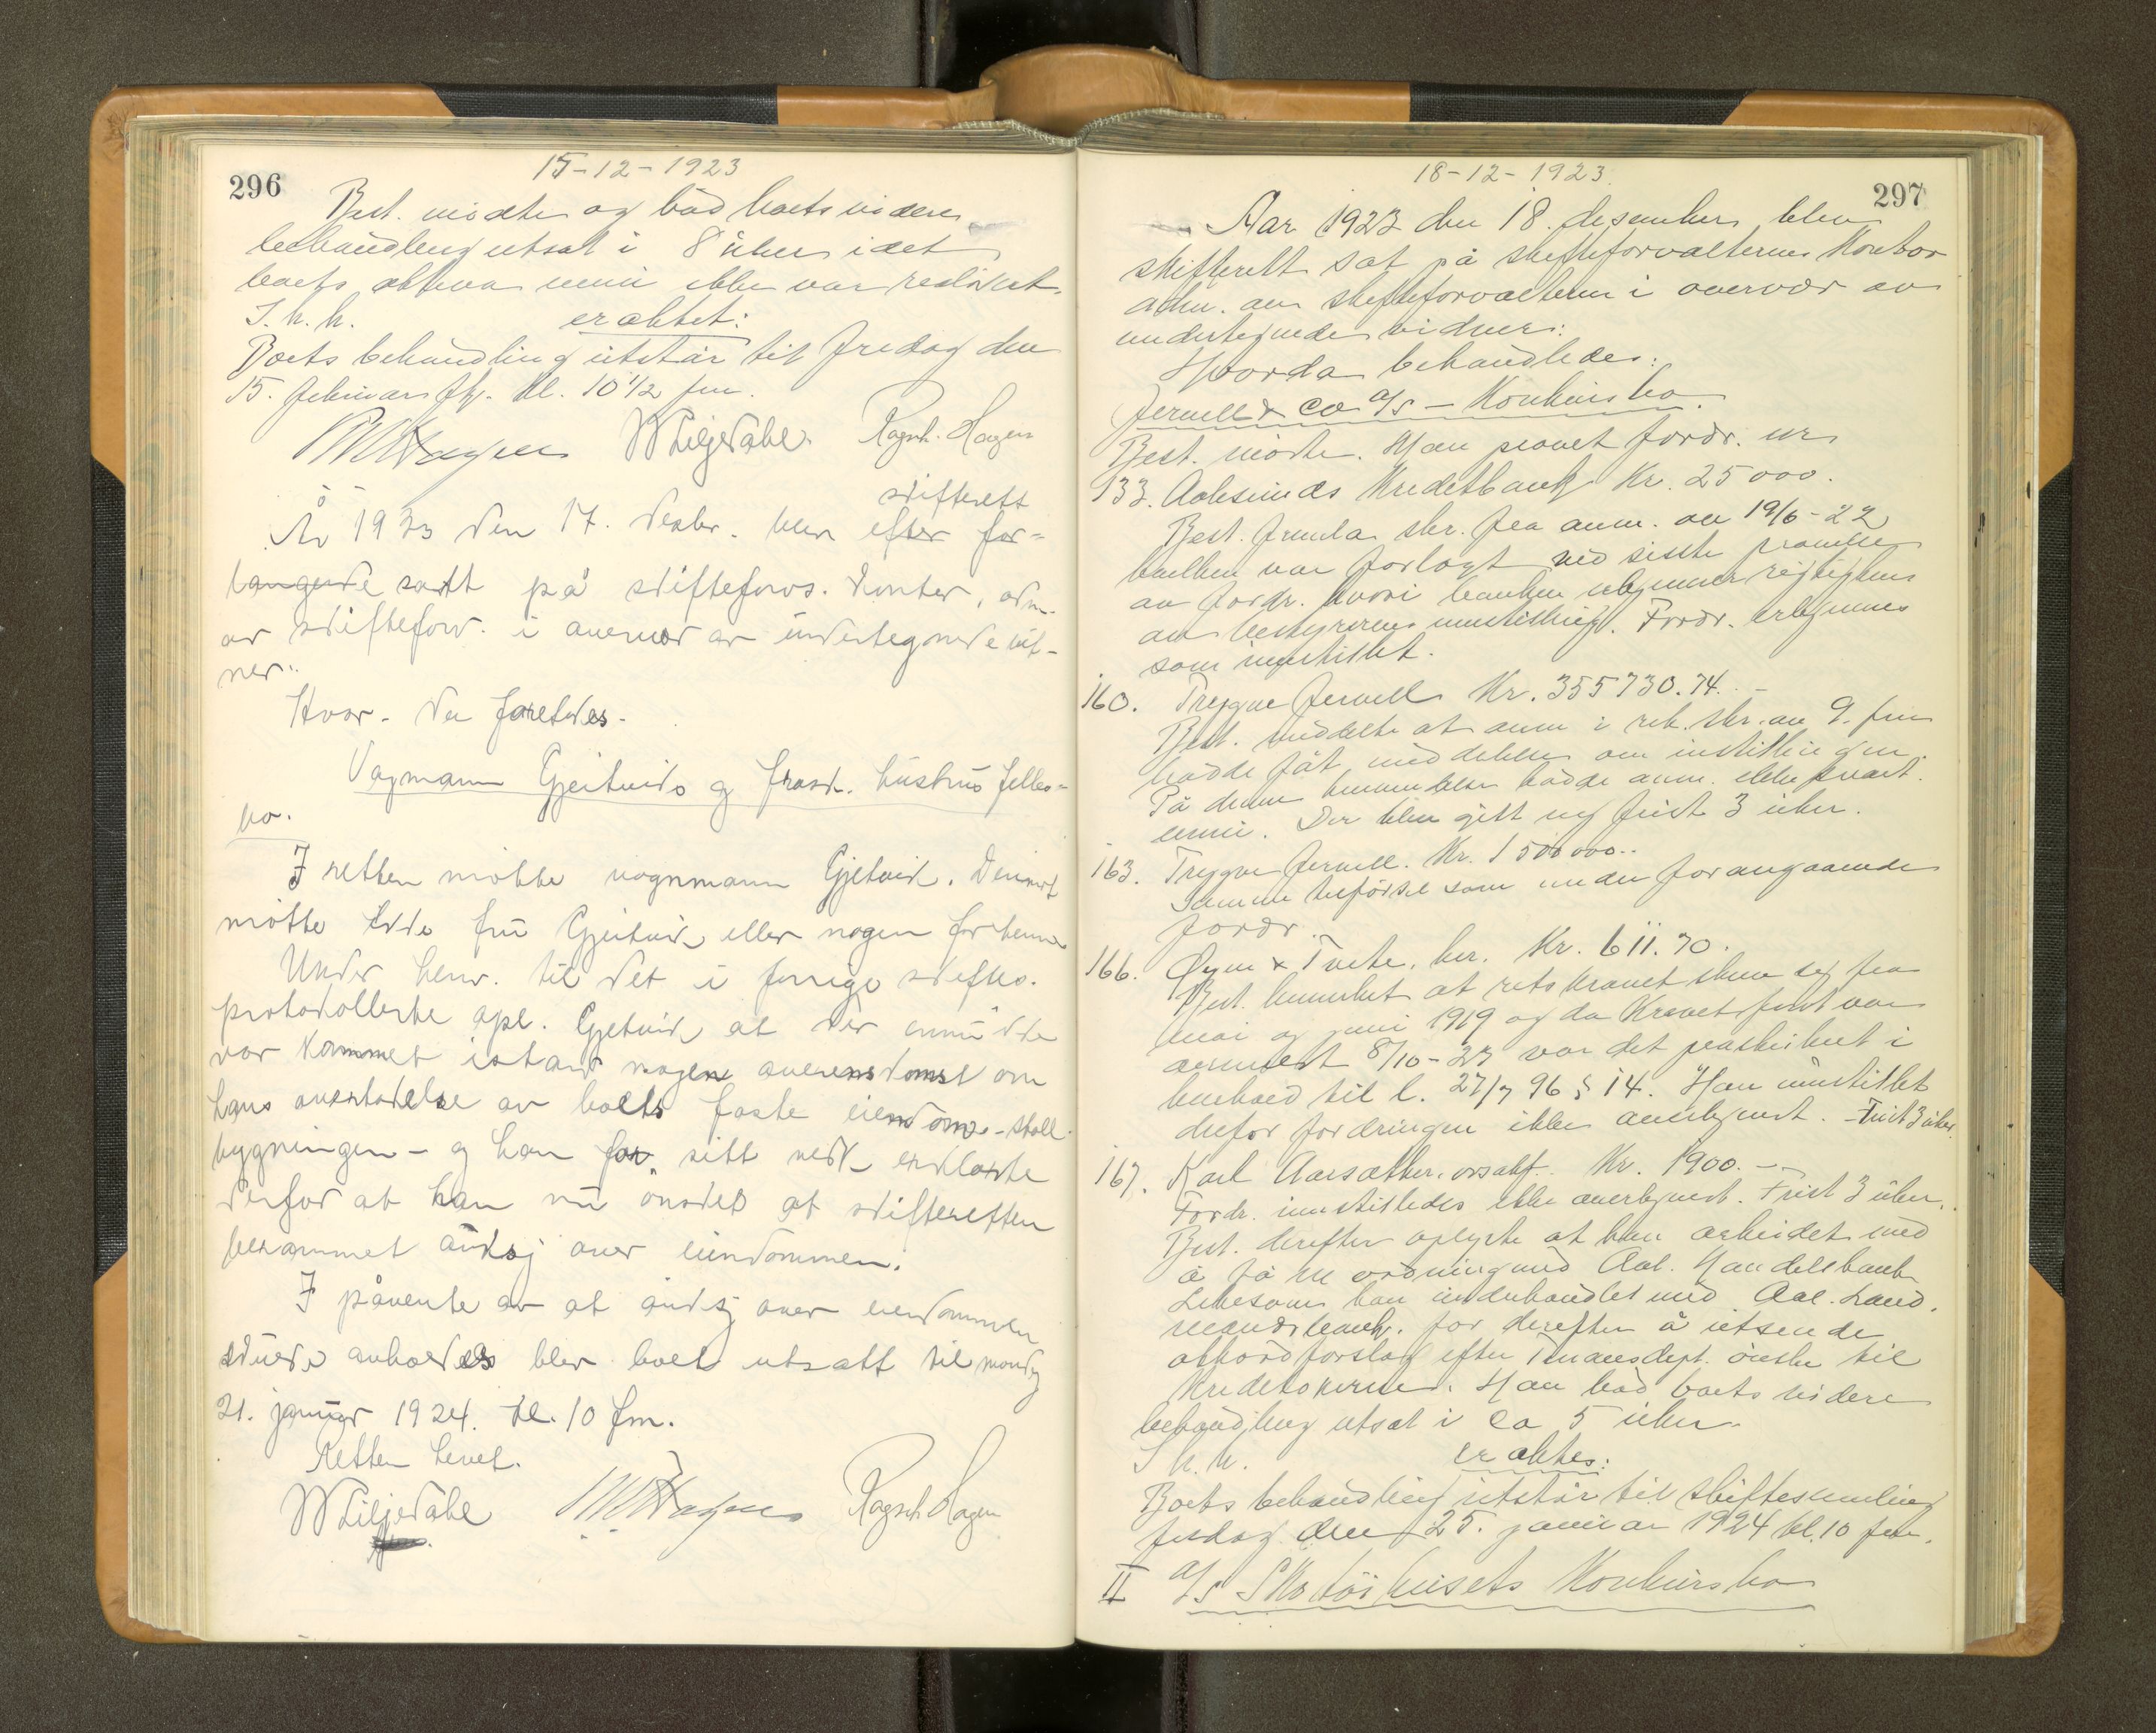 296
15-12-1923
Best. mødte og bad boets videre
behandling utsat i 8 uker idet
boets aktiva ennu ikke var realisert.
I. h. h. eraktet:
Boets behandling utstår til fredag den
15. februar fk. kl. 10 1/2 fm.
W Liljedahl. Ragnh. Hagen
skifterett
År 1923 den 17. desbr. blev efter for-
langende satt på skifteforv. kontor, adm.
av skifteforv. i overvær av undertegnede vit-
ner:
Hvor da foretokes.
Vognmann Gjeitvids og frask. hustrus felles-
bo.
I retten møtte vognmann Gjeitvik. Derimot
møtte ikke fru Gjeitvik eller nogen for henne
Under henv. til det i forrige skiftes.
protokollerte opl. Gjetvik at der ennu ikke
var kommet istand nogen overenskomst om
hans overtakelse av boets faste eiendom - stall-
bygningen - og han for sitt vedk. erklærte
derfor at han nu ønsket at skifteretten
berammet auksj. over eiendommen.
I påvente av at auksj over eiendommen
skulde avholdes blev boet utsatt til mandag
21. januar 1924. kl. 10 fm.
Retten hevet.
W Liljedahl Ragnh Hagen
18-12-1923.
297
Aar 1923 den 18. desember blev
skifterett sat på skifteforvalterens kontor
adm. av skifteforvalteren i overvær av
undertegnede vidner:
Hvorda behandledes:
Jervell & Co A/S - Konkursbo.
Best. møtte. Han prøvet fordr. nr
133. Aalesunds Kreditbank Kr. 25000.
Best. fremla skr. fra anm. av 19/6-22
hvilken var forlagt ved sisste prøvelse
av fordr. hvori banken erkjenner rigtigheten
av bestyrerens innstilling. Fordr. erkjennes
som innstillet.
160. Trygve Jervell Kr. 355730.74. -
Best. meddelte at anm i rek. skr. av 9. fm
hadde fåt meddelelse om instillingen.
På denne henvendelse hadde anm. ikke svart
ennu. Der blev gitt ny frist 3 uker.
163. Trygve Jervell. Kr. 1500000..
Samme tilførsel som under forangaaende
fordr.
166. Øyen & Tvete, her. Kr. 611.70.
Best. bemerket at rets kravet skrev sig fra
mai og juni 1919 og da kravet først var
anmeldt 8/10-23 var det preskribert i
henhold til l. 27/7 96 § 14. Han innstillet
derfor fordringen ikke anerkjent. - Frist 3 uker.
167. Karl Aarsæther, orsakf. Kr. 1900. -
Fordr. innstilledes ikke anerkjent. Frist 3 uker.
Best. derefter oplyste at han arbeidet med
å få en ordning med Aal. Handelsbank
Likesom han underhandlet med Aal. Land.
mandsbank. for derefter å utsende
akkordforslag efter Finansdept. ønske til
kreditorerne. Han bad boets videre
behandling utsat i ca 5 uker.
I h. h. eraktes:
Boets behandling utstår til skiftesamling
fredag den 25. januar 1924 kl. 10 fm.
II A/S Skotøihusets Konkursbo